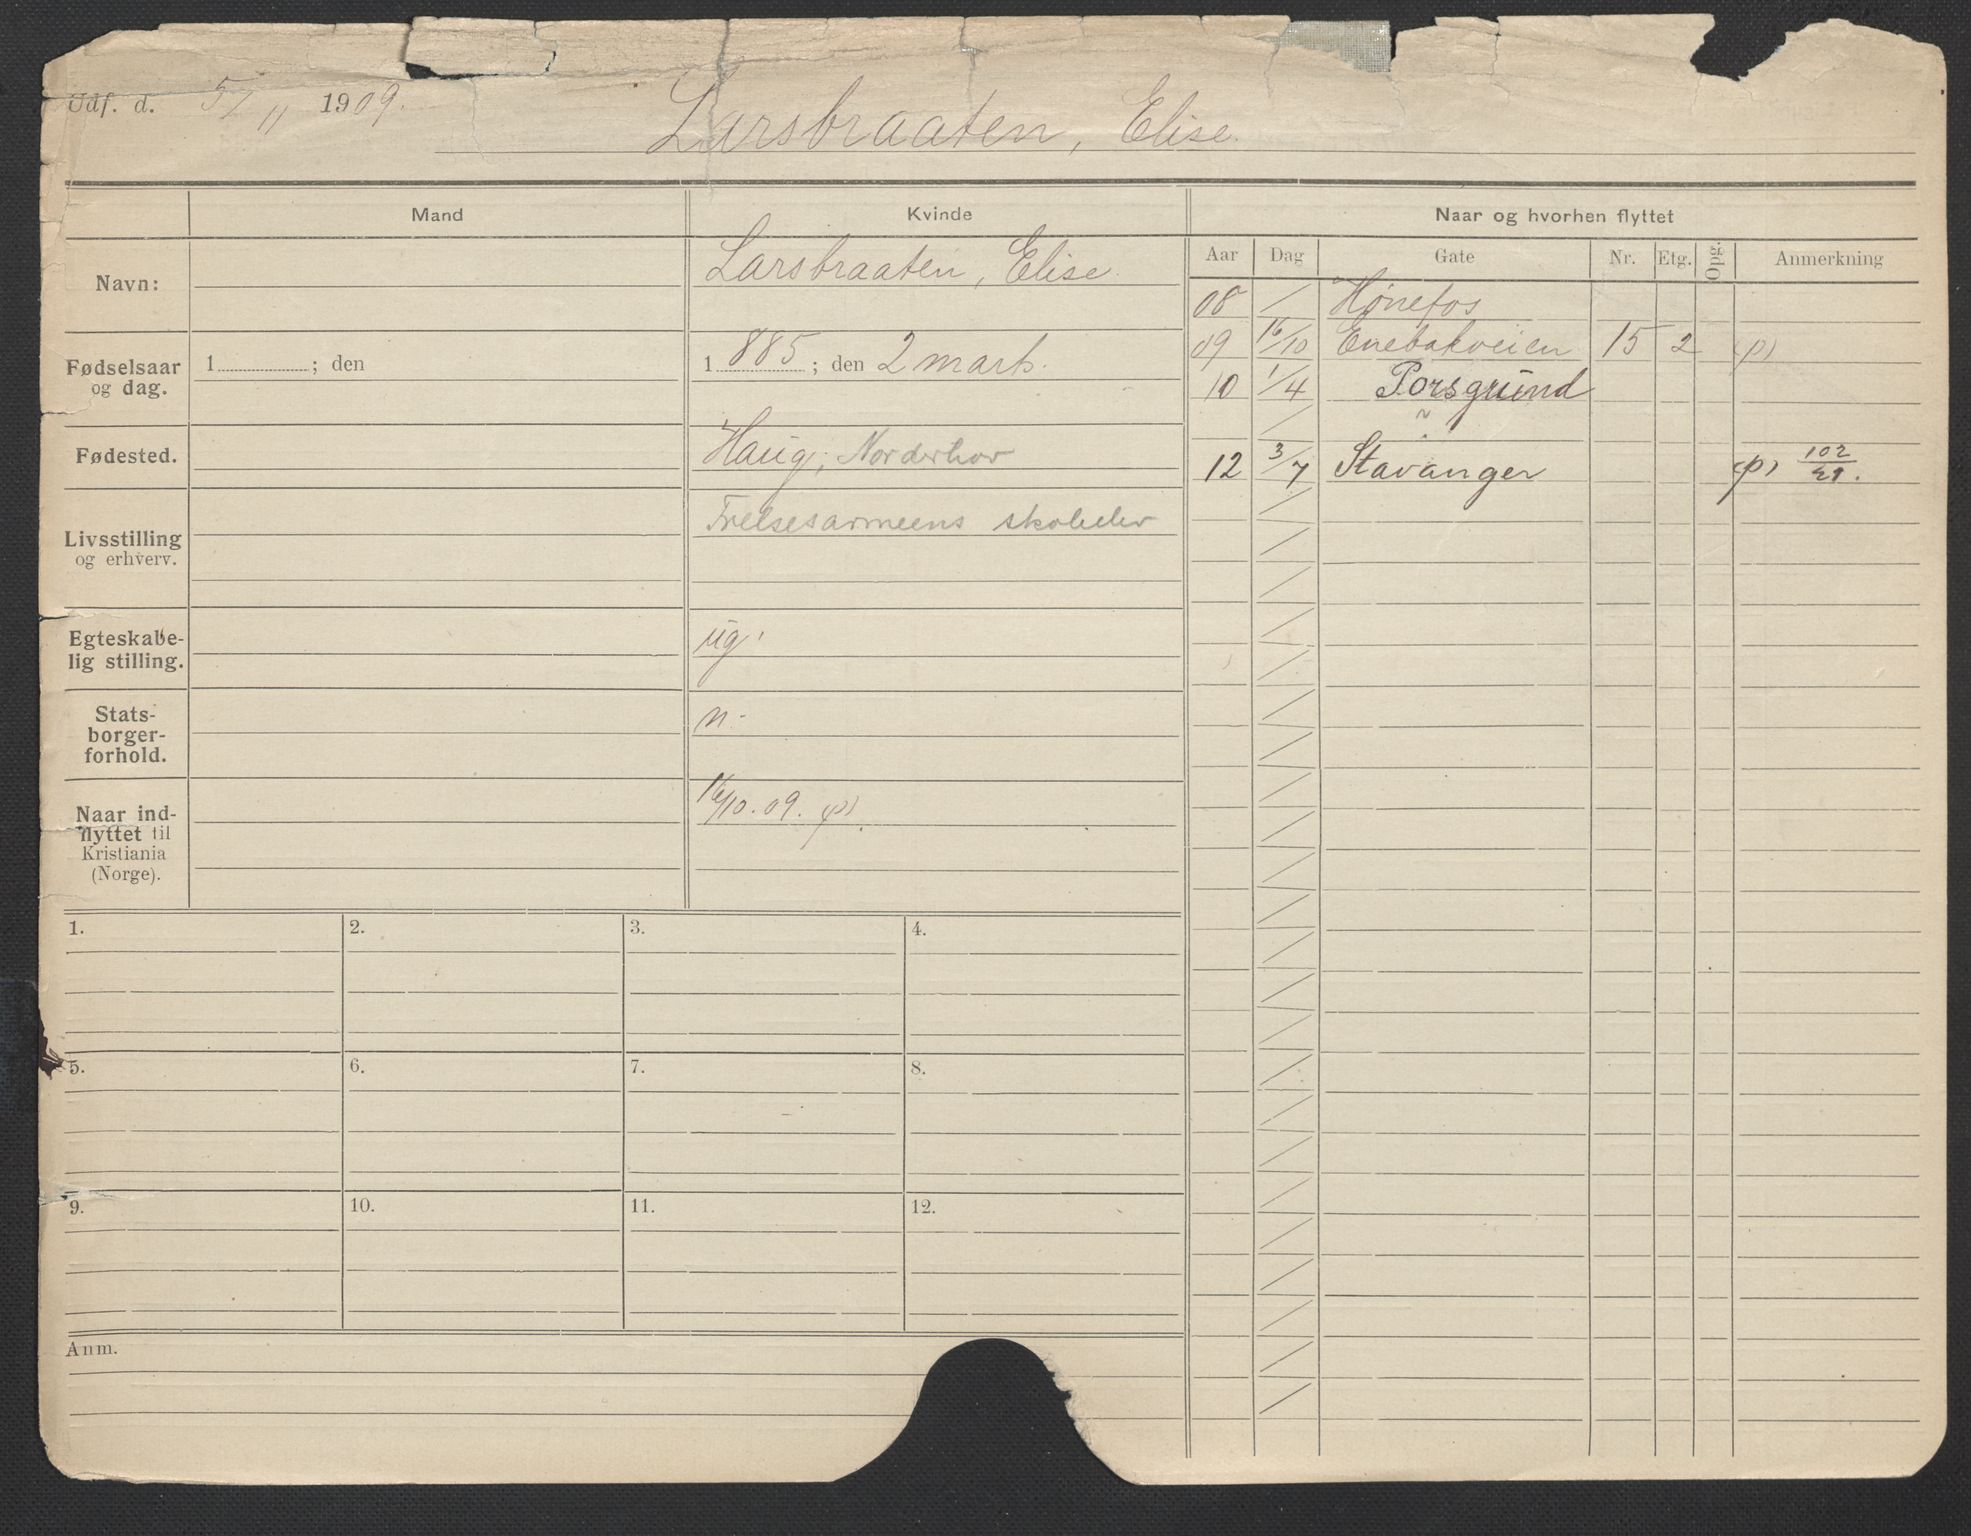 Udf. d. 5/11 1909.
Larsbraaten, Elise.
Mand
Kvinde
Naar og hvorhen flyttet
Aar Dag Gate Nr. Etg. Opg. Anmerkning
Navn:
Larsbraaten, Elise.
Fødselsaar og dag.
1 ; den
1 885 ; den 2 marts.
Fødested.
Haug, Norderhov
Livsstilling og erhverv.
Frelsesarmeens skoleelev
Egteskabe-
lig stilling.
ug.
Stats-
borger-
forhold.
n.
Naar ind-
flyttet til
Kristiania
(Norge).
16/10. 09. (p).
08 / Hønefos
09 16/10 Enebakveien 15 2 (p)
10 1/4 Porsgrund
12 3/7 Stavanger (p) 102/21.
1. 2. 3. 4.
5. 6. 7. 8.
9. 10. 11. 12.
Anm.